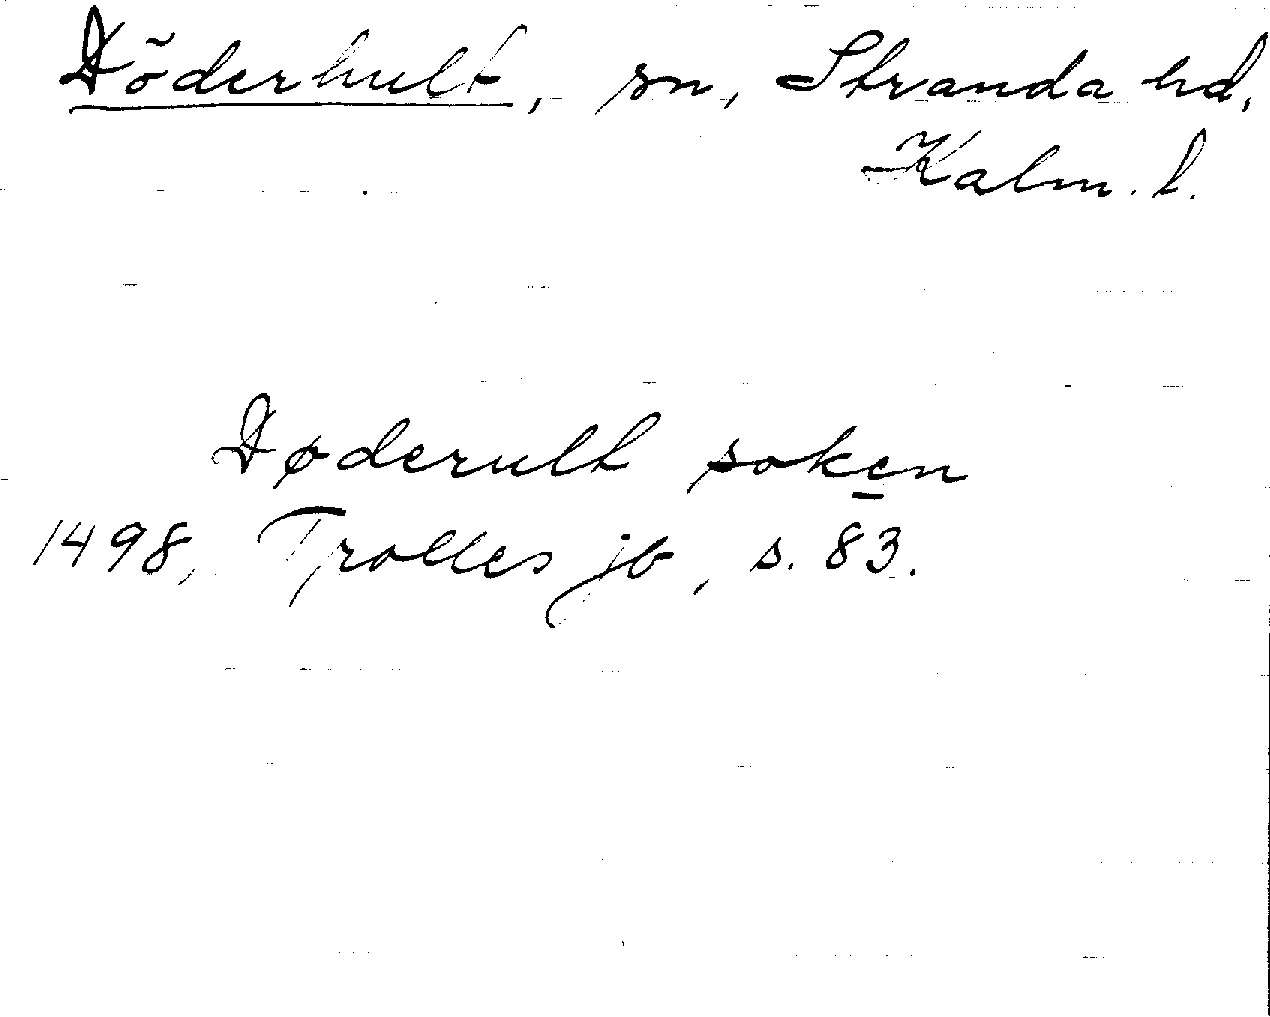 Döderhult, sn, Stranda hd,
Kalm. l.
Døderult soken
1498, Trolles jb, s. 83.